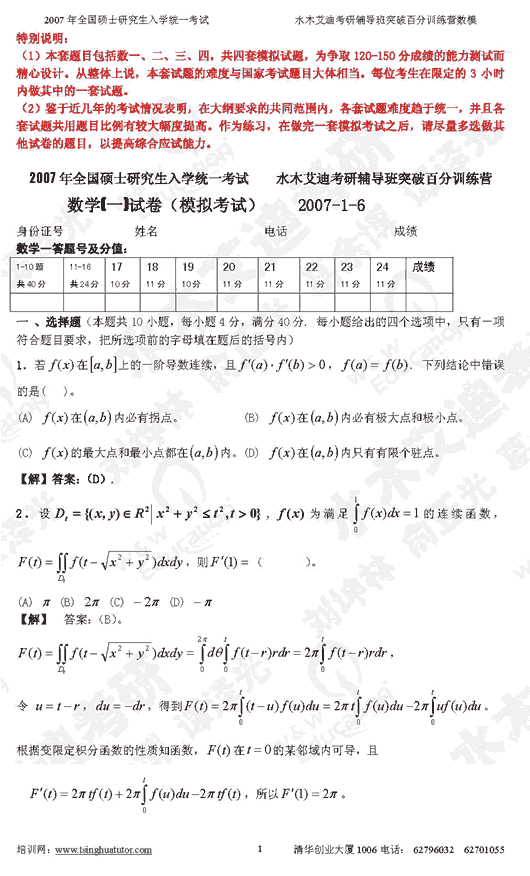 2007 年全国硕士研究生入学统一考试 水木艾迪考研辅导班突破百分训练营数模
特别说明：
（1）本套题目包括数一、二、三、四，共四套模拟试题，为争取 120-150 分成绩的能力测试而
精心设计。从整体上说，本套试题的难度与国家考试题目大体相当。每位考生在限定的 3 小时
内做其中的一套试题。
（2）鉴于近几年的考试情况表明，在大纲要求的共同范围内，各套试题难度趋于统一，并且各
套试题共用题目比例有较大幅度提高。作为练习，在做完一套模拟考试之后，请尽量多选做其
他试卷的题目，以提高综合应试能力。
2007 年全国硕士研究生入学统一考试 水木艾迪考研辅导班突破百分训练营
数学(一)试卷（模拟考试） 2007-1-6
身份证号 姓名 电话 成绩
数学一答题号及分值：
1-10 题 11-16 17 18 19 20 21 22 23 24 成绩
共 40 分 共 24 分 10 分 11 分 10分 11 分 11 分 11 分 11 分 11 分
一 、选择题（本题共 10 小题，每小题 4 分，满分 40 分. 每小题给出的四个选项中，只有一项
符合题目要求，把所选项前的字母填在题后的括号内）
1. 若 f(x) 在 [a,b] 上的一阶导数连续，且 f′(a)·f′(b) > 0， f(a) = f(b). 下列结论中错误
的是( )。
(A) f(x) 在 (a,b) 内必有拐点。 (B) f(x) 在 (a,b) 内必有极大点和极小点。
(C) f(x) 的最大点和最小点都在 (a,b) 内。 (D) f(x) 在 (a,b) 内只有有限个驻点。
【解】答案：(D).
2. 设 D_t = {(x,y) ∈ R² | x² + y² ≤ t², t > 0}，f(x) 为满足 ∫₀¹ f(x)dx = 1 的连续函数，
F(t) = ∬_{D_t} f(t − √(x² + y²))dxdy，则 F′(1) =（ ）。
(A) π (B) 2π (C) −2π (D) −π
【解】 答案：(B)。
F(t) = ∬_{D_t} f(t − √(x² + y²))dxdy = ∫₀^{2π} dθ ∫₀^t f(t − r)rdr = 2π ∫₀^t f(t − r)rdr，
令 u = t − r，du = −dr，得到 F(t) = 2π ∫₀^t (t − u) f(u)du = 2π t ∫₀^t f(u)du − 2π ∫₀^t uf(u)du。
根据变限定积分函数的性质知函数，F(t) 在 t = 0 的某邻域内可导，且
F′(t) = 2π tf(t) + 2π ∫₀^t f(u)du − 2π tf(t)，所以 F′(1) = 2π。
培训网：www.tsinghuatutor.com 1 清华创业大厦 1006 电话： 62796032 62701055